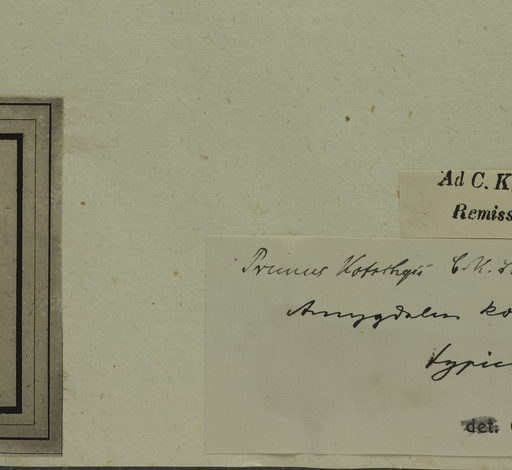 Ad C. K
Remiss
Prunus Kotschyii
Amygdalus ko
typic
det.